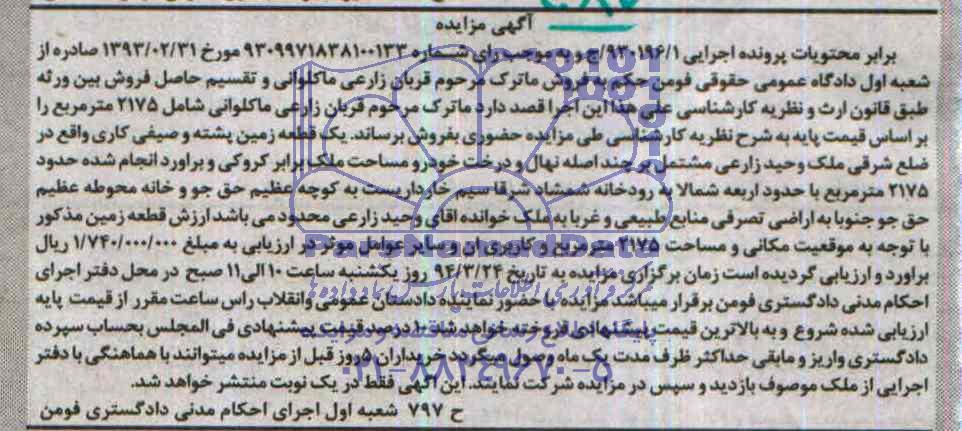 آگهی مزایده
برابر محتویات پرونده اجرایی ۹۳۰۱۹۶/۱/ج و به موجب رای شماره ۹۳۰۹۹۷۱۸۳۸۱۰۰۱۳۳ مورخ ۱۳۹۳/۰۲/۳۱ صادره از
شعبه اول دادگاه عمومی حقوقی فومن حکم به فروش ماترک مرحوم قربان زارعی ماکلوانی و تقسیم حاصل فروش بین ورثه
طبق قانون ارث و نظریه کارشناسی علی هذا این اجرا قصد دارد ماترک مرحوم قربان زارعی ماکلوانی شامل ۲۱۷۵ مترمربع را
بر اساس قیمت پایه به شرح نظریه کارشناسی طی مزایده حضوری بفروش برساند. یک قطعه زمین پشته و صیفی کاری واقع در
ضلع شرقی ملک وحید زارعی مشتمل بر چند اصله نهال و درخت خودرو مساحت ملک برابر کروکی و براورد انجام شده حدود
۲۱۷۵ مترمربع با حدود اربعه شمالا به رودخانه شمشاد شرقا سیم خارداربست به کوچه عظیم حق جو و خانه محوطه عظیم
حق جو جنوبا به اراضی تصرفی منابع طبیعی و غربا به ملک خوانده اقای وحید زارعی محدود می باشد ارزش قطعه زمین مذکور
با توجه به موقعیت مکانی و مساحت ۲۱۷۵ مترمربع و کاربری ان و سایر عوامل موثر در ارزیابی به مبلغ ۱/۷۴۰/۰۰۰/۰۰۰ ریال
براورد و ارزیابی گردیده است زمان برگزاری مزایده به تاریخ ۹۴/۳/۲۴ روز یکشنبه ساعت ۱۰ الی ۱۱ صبح در محل دفتر اجرای
احکام مدنی دادگستری فومن برقرار میباشد مزایده با حضور نماینده دادستان عمومی وانقلاب راس ساعت مقرر از قیمت پایه
ارزیابی شده شروع و به بالاترین قیمت پیشنهادی فروخته خواهد شد ۱۰ درصد قیمت پیشنهادی فی المجلس بحساب سپرده
دادگستری واریز و مابقی حداکثر ظرف مدت یک ماه وصول میگردد خریداران ۵روز قبل از مزایده میتوانند با هماهنگی با دفتر
اجرایی از ملک موصوف بازدید و سپس در مزایده شرکت نمایند. این آگهی فقط در یک نوبت منتشر خواهد شد.
ح ۷۹۷ شعبه اول اجرای احکام مدنی دادگستری فومن
ParsNamadData
۰۲۱-۸۸۳۴۹۶۷۰-۵